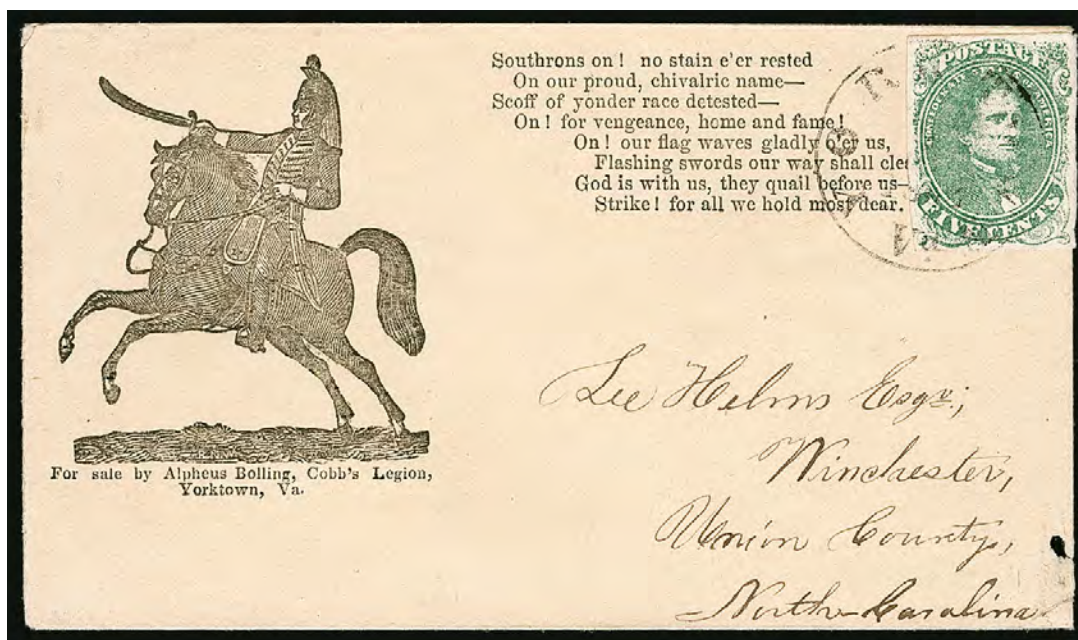 Southrons on! no stain e'er rested
On our proud, chivalric name—
Scoff of yonder race detested—
On! for vengeance, home and fame!
On! our flag waves gladly o'er us,
Flashing swords our way shall cle
God is with us, they quail before us—
Strike! for all we hold most dear.
POSTAGE
FIVE CENTS
VA
For sale by Alpheus Bolling, Cobb's Legion,
Yorktown, Va.
Lee Helms Esqr.,
Winchester,
Union County,
North-Carolina